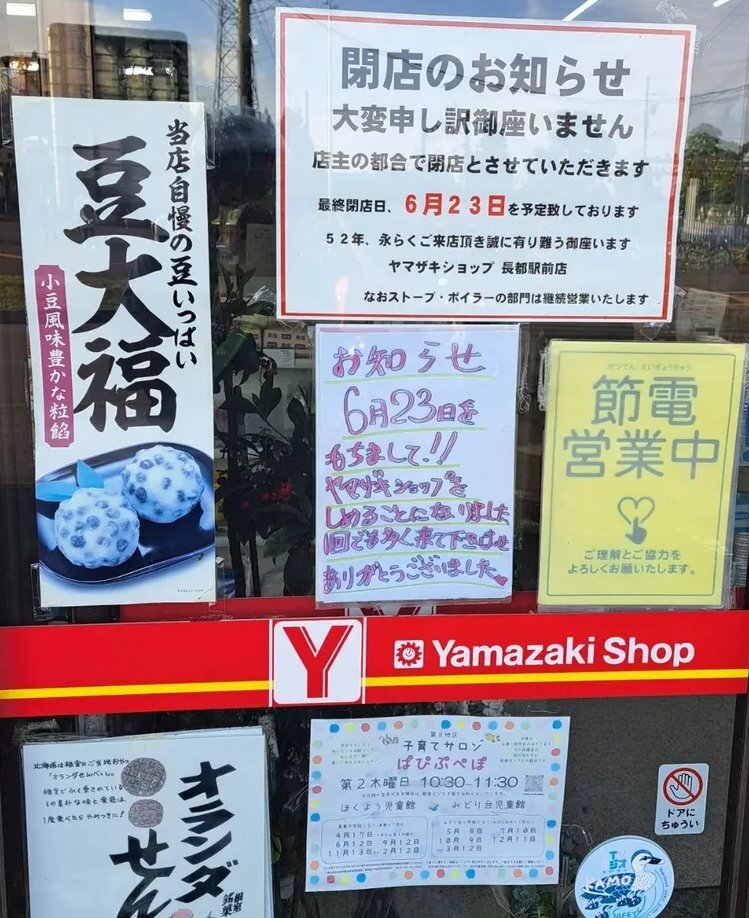 閉店のお知らせ
大変申し訳御座いません
店主の都合で閉店とさせていただきます
最終閉店日、6月23日を予定致しております
52年、永らくご来店頂き誠に有り難う御座います
ヤマザキショップ 長都駅前店
なおストーブ・ボイラーの部門は継続営業いたします
当店自慢の豆いっぱい
豆大福
小豆風味豊かな粒餡
お知らせ
6月23日を
もちまして!!
ヤマザキショップを
しめることになりました
1回でも多く来て下さいませ
ありがとうございました
せつでん えいぎょうちゅう
節電
営業中
ご理解とご協力を
よろしくお願いいたします。
Y Yamazaki Shop
オランダ
せん
第8地区
子育てサロン
ぱぴぷぺぽ
第2木曜日 10:30~11:30
ほくよう児童館 みどり台児童館
4月17日
6月12日 9月12日
11月13日 2月12日
5月8日 7月10日
10月9日 12月11日
3月12日
ドアに
ちゅうい
KAMO